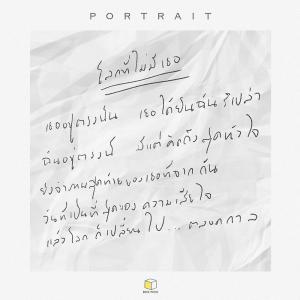 PORTRAIT
โลกที่ไม่มีเธอ
เธออยู่ตรงนั้น เธอได้ยินฉันรึเปล่า
ฉันอยู่ตรงนี้ มีแต่คิดถึงสุดหัวใจ
ยังจำภาพสุดท้ายของเธอที่จากกัน
วันที่เป็นที่สุดของความเสียใจ
แล้วโลกก็เปลี่ยนไป... ตลอดกาล